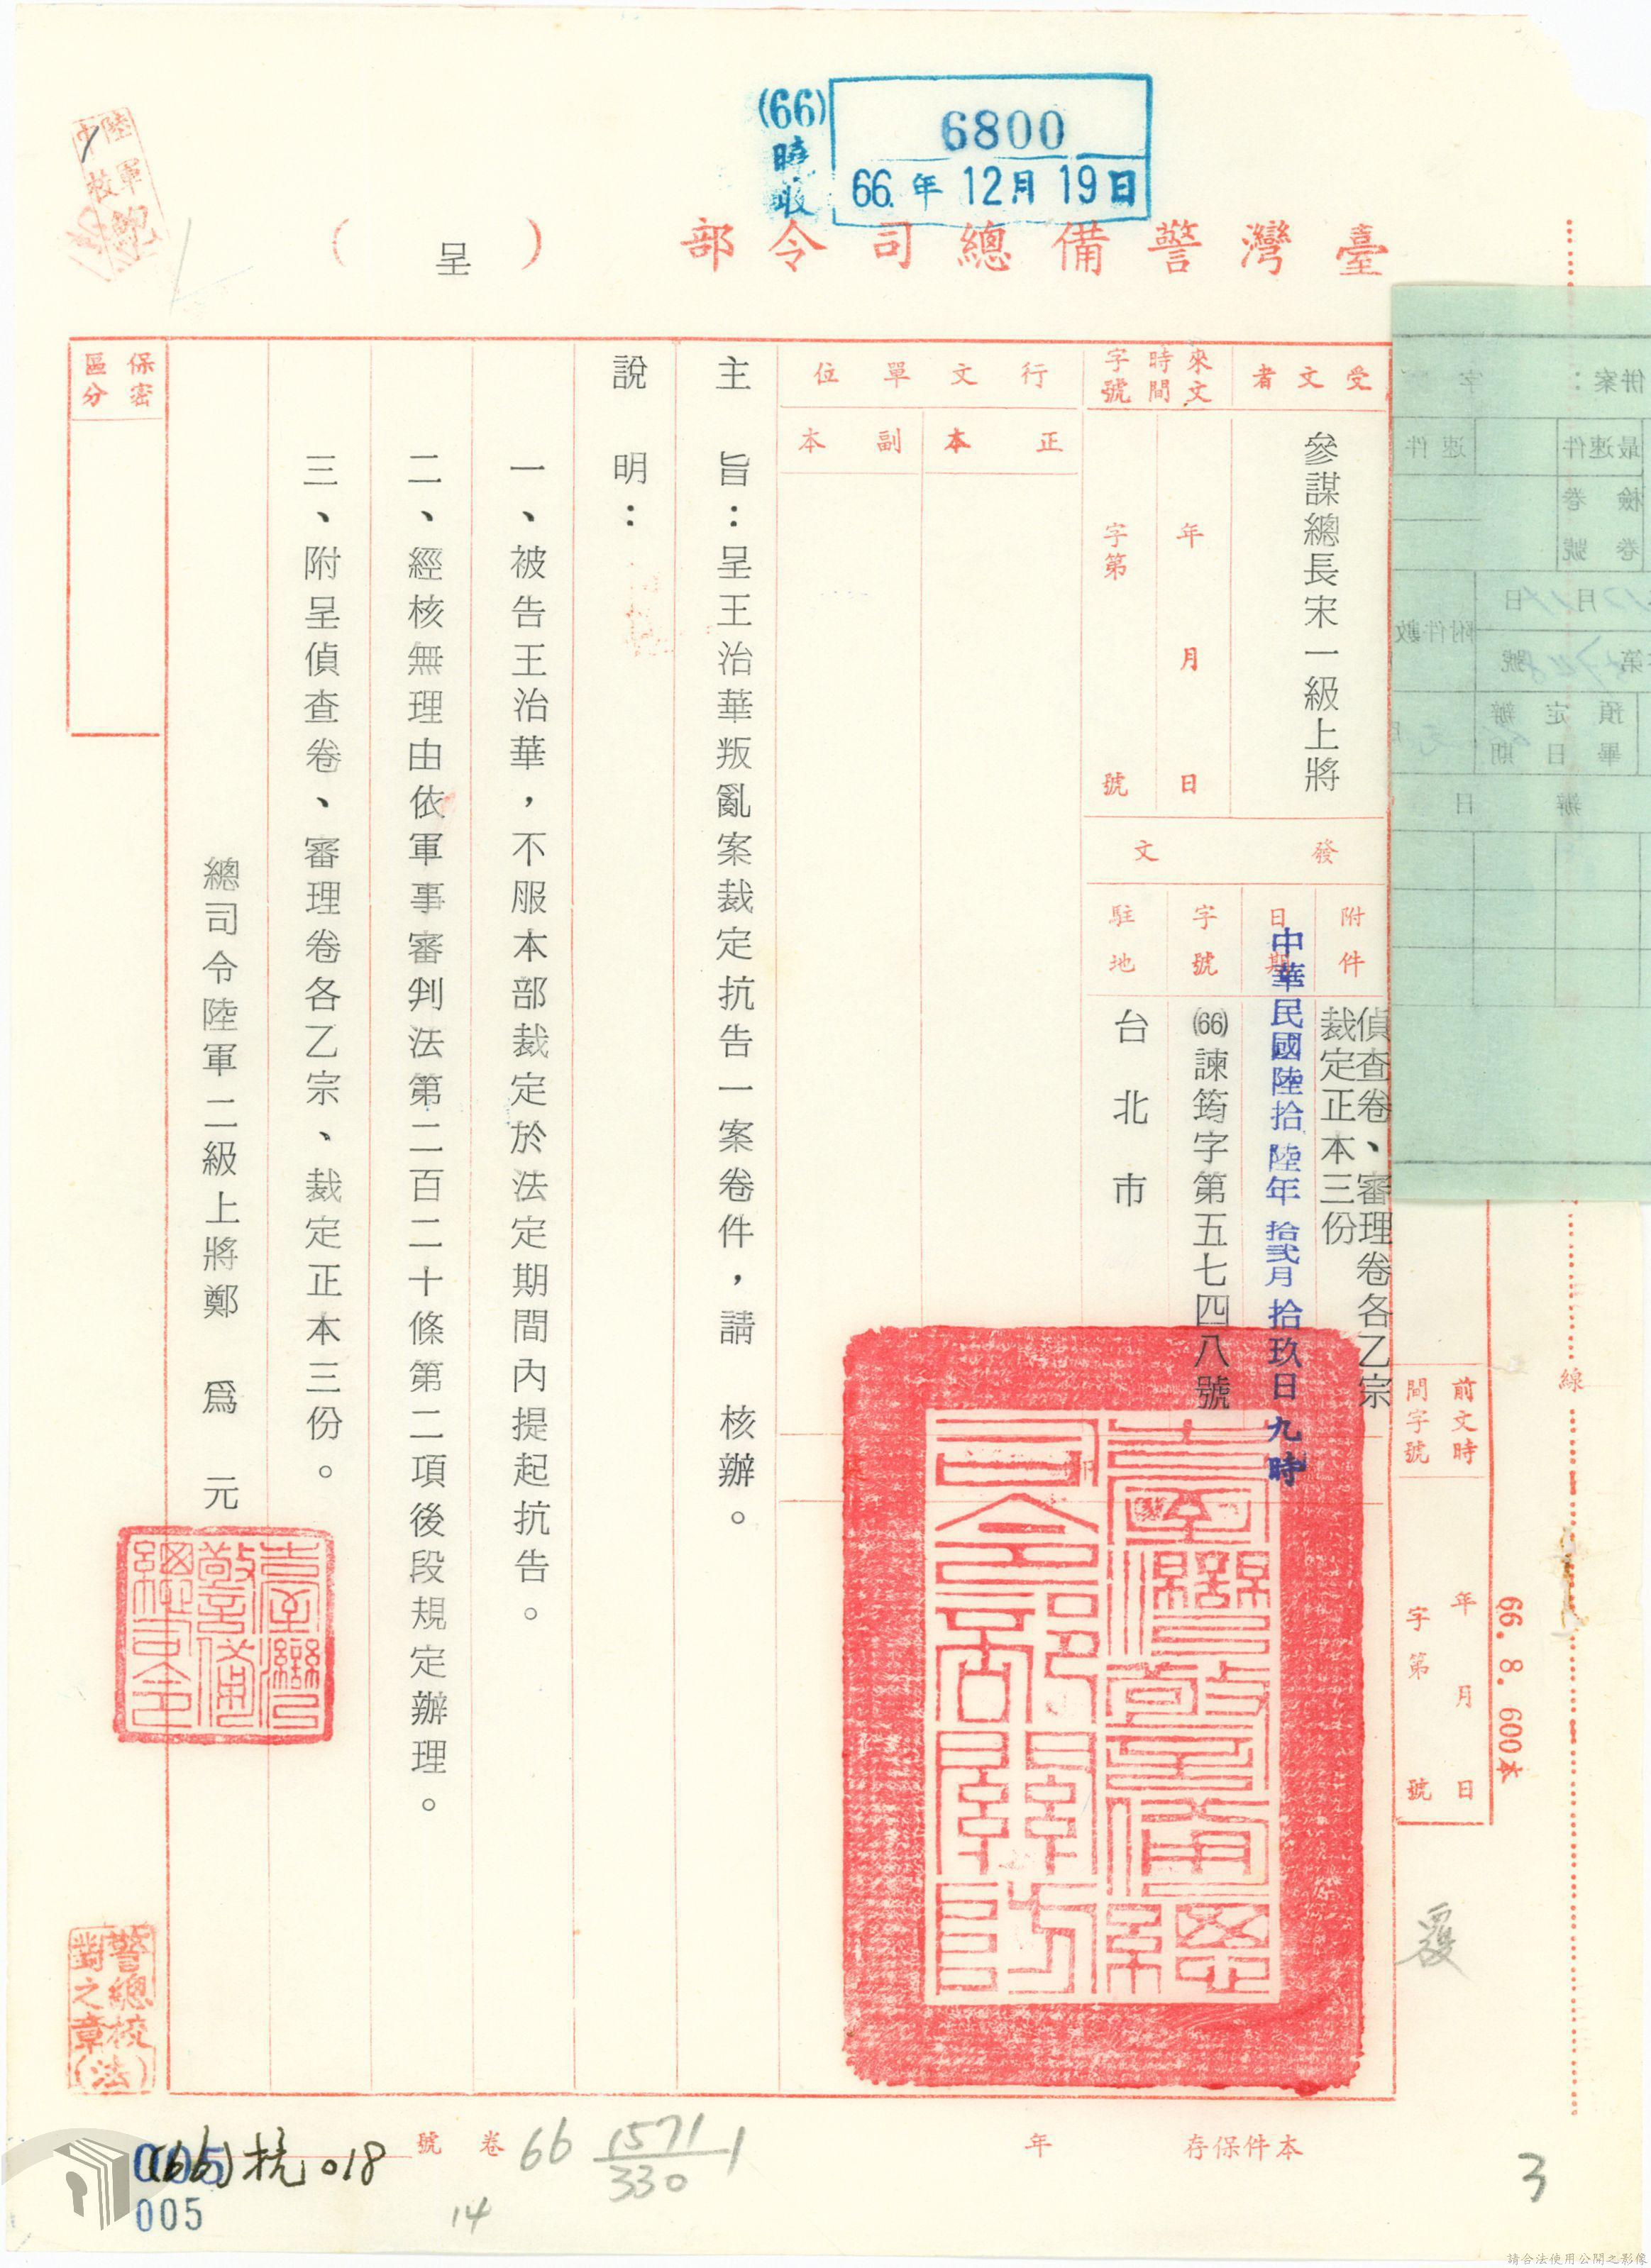 (66)
6800
曉收
66.年12月19日
臺灣警備總司令部
(呈)
陸軍
受文者
參謀總長宋一級上將
來文
時間
字號
年月日
字第號
發文
附件
偵查卷、審理卷各乙宗
裁定正本三份
日期
中華民國陸拾陸年拾貳月拾玖日九時
字號
(66)諫筠字第五七四八號
駐地
台北市
行文單位
正本
副本
印
臺灣警備總司令部關防
主旨：呈王治華叛亂案裁定抗告一案卷件，請 核辦。
說明：
一、被告王治華，不服本部裁定於法定期間內提起抗告。
二、經核無理由依軍事審判法第二百二十條第二項後段規定辦理。
三、附呈偵查卷、審理卷各乙宗、裁定正本三份。
總司令陸軍二級上將鄭 爲 元
臺灣警備總司令
保密區分
警總校對之章(法)
併案：
字
最速件
速件
檢卷
卷號
12月19日
附件數
第 號
預定辦畢日期
辦
日
線
前文時間字號
年月日
字第號
66. 8. 600本
覆
本件保存 年
卷號
66 1571/330 1
14
(66)抗018
005
005
3
請合法使用公開之影像